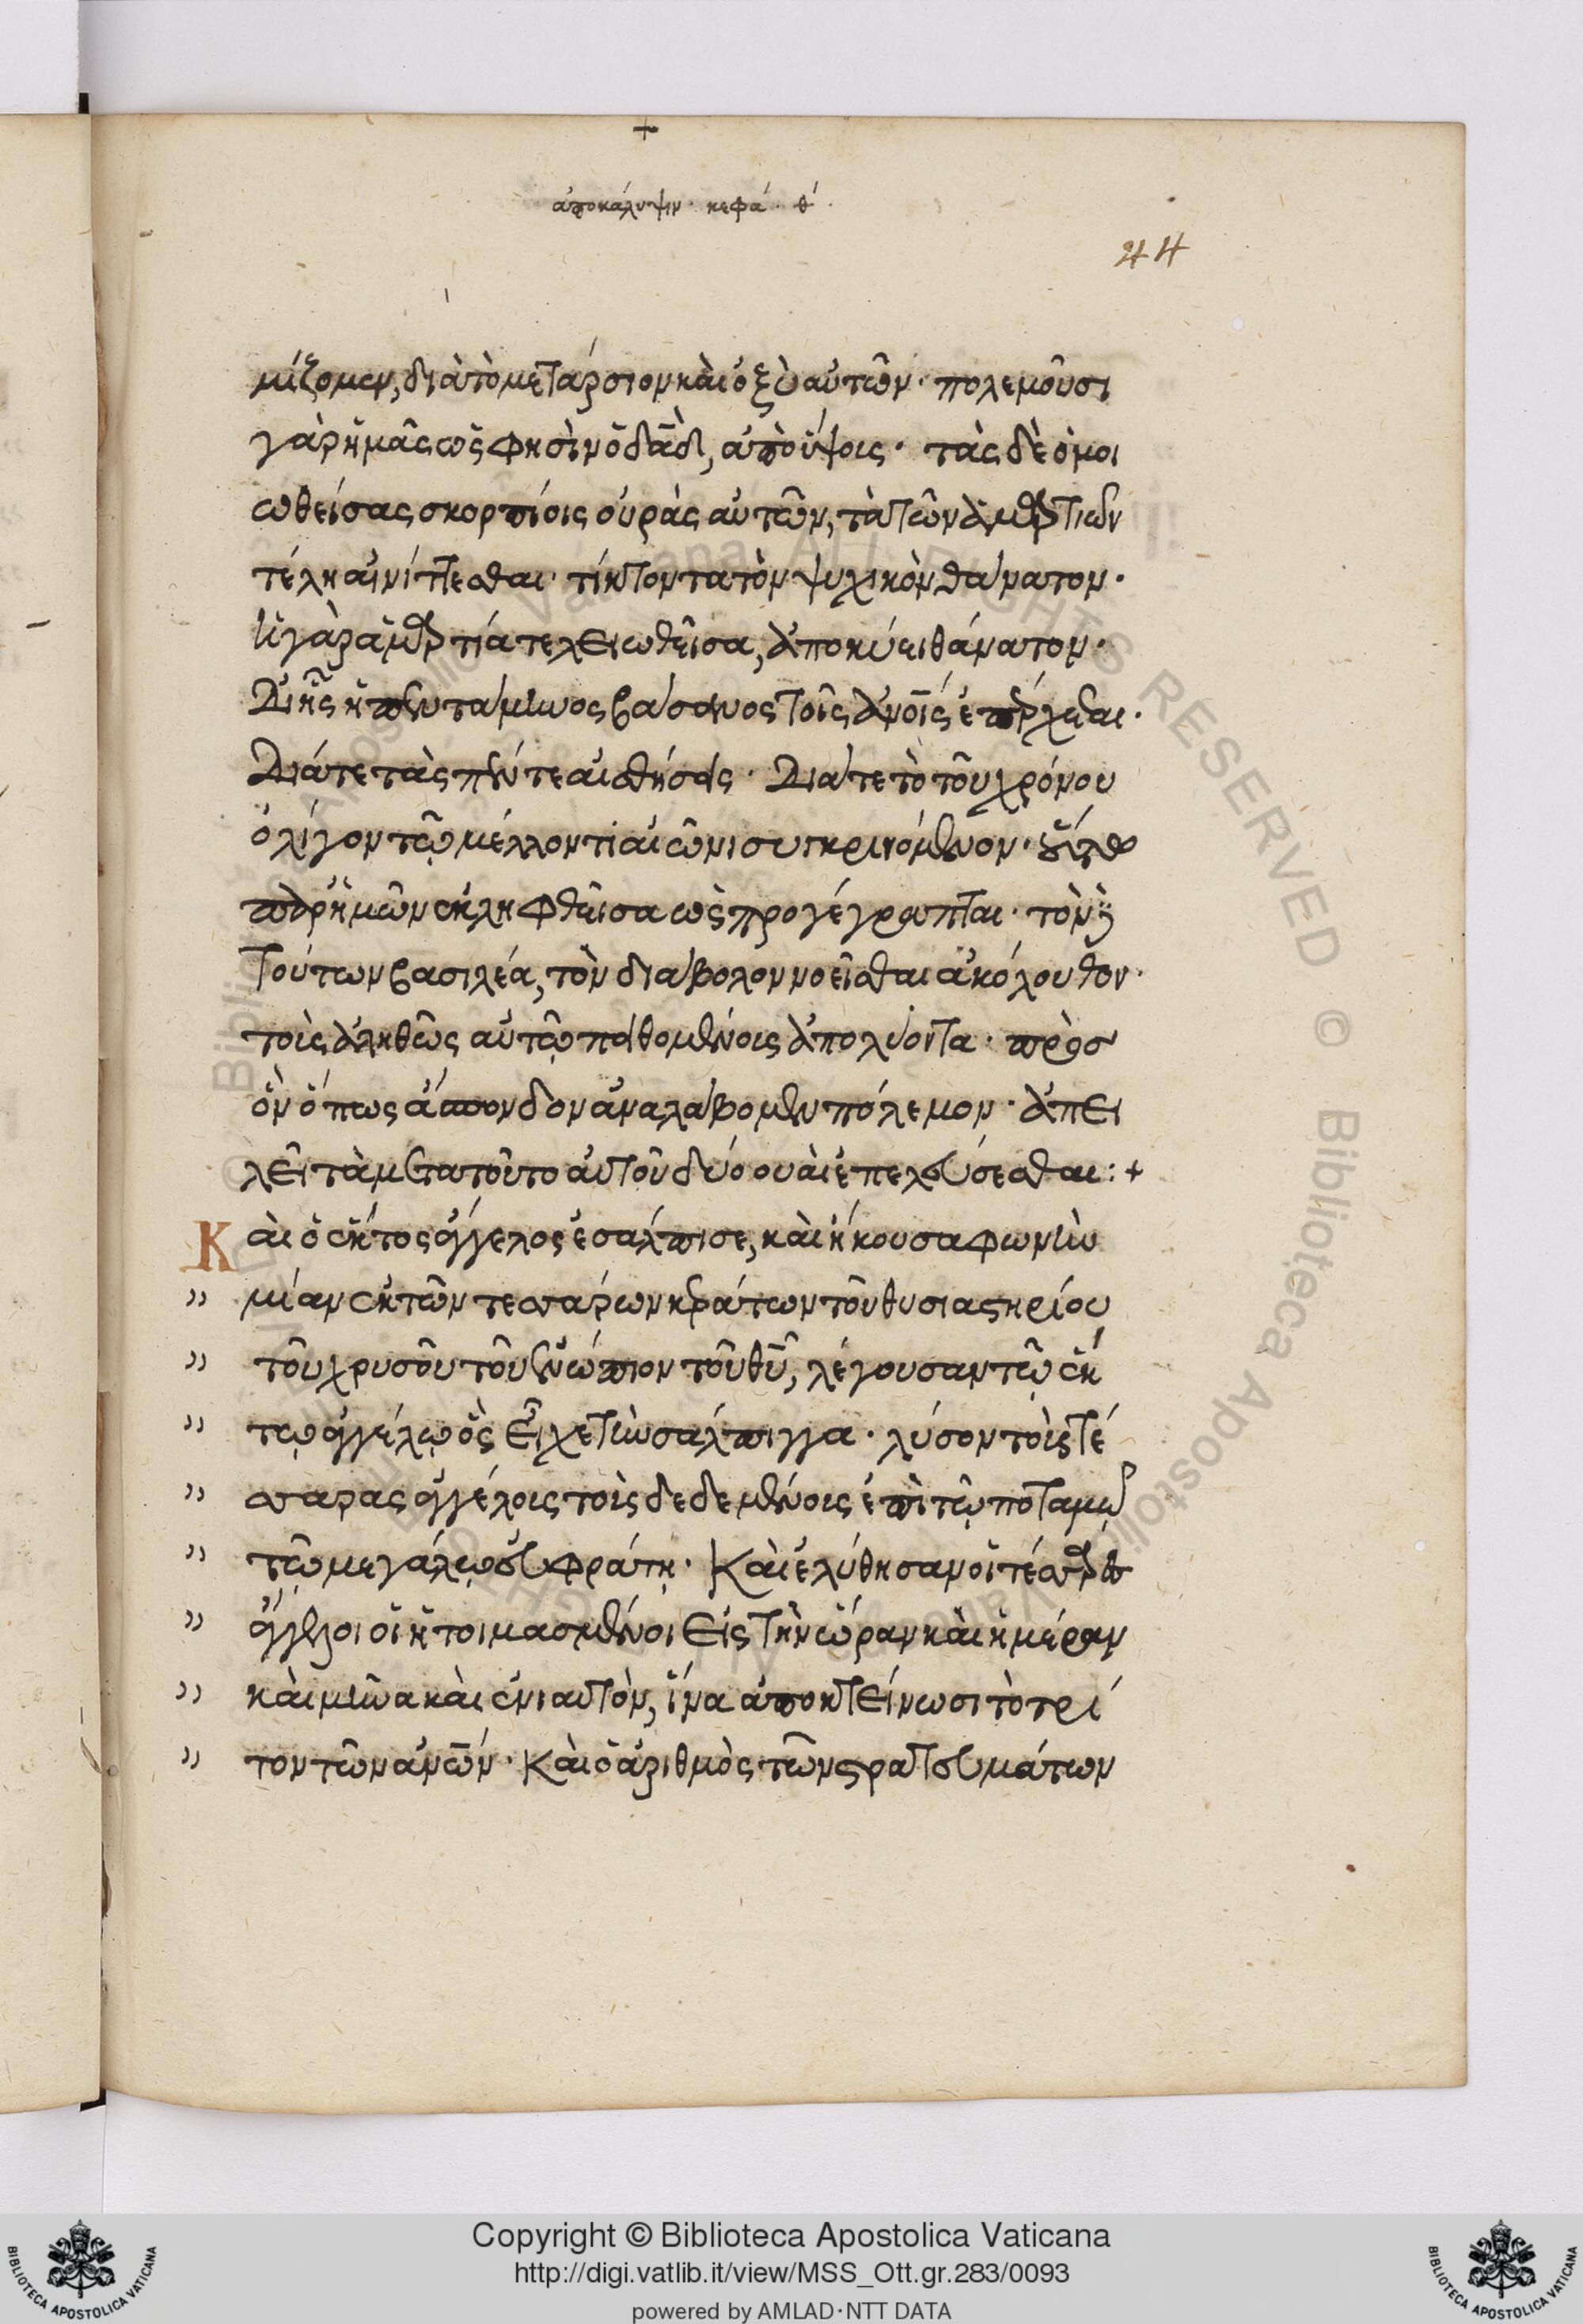 +
ἀποκάλυψιν· κεφά· θ´·
44
μίζομεν, διὰ τὸ μετάρσιον καὶ ὀξὺ αὐτῶν· πολεμοῦσι
γὰρ ἡμᾶς ὥς φησὶν ὁ δᾶδ, ἀπὸ ὕψοις· τὰς δὲ ὁμοι
ωθείσας σκορπίοις οὐρὰς αὐτῶν, τὰ τῶν ἁμαρτιῶν
τέλη αἰνίττεσθαι· τίκτοντα τὸν ψυχικὸν θάνατον·
ἡ γὰρ ἁμαρτία τελειωθεῖσα, ἀποκύει θάνατον·
Δι' ἧς ἡ πενταμηνος βάσανος τοῖς ἀνοις ἐπέρχεται·
Διά τε τὰς πέντε αἰσθήσεις· Διά τε τὸ τοῦ χρόνου
ὀλίγον τῷ μέλλοντι αἰῶνι συγκρινόμενον·
παρ' ἡμῶν ἐκληφθεῖσα ὡς προγέγραπται· τὸν δὲ
τούτων βασιλέα, τὸν διάβολον νοεῖσθαι ἀκόλουθον·
τοὶς ἀληθῶς αὐτῷ πειθομένοις ἀπολύοντα· πρὸσ
ὃν ὅπως ἄσπονδον ἀναλάβομεν πόλεμον· ἀπει
λεῖ τὰ μετα τοῦτο αὐτοῦ δύο ουαὶ ἐπελεύσεσθαι:+
Καὶ ὁ ἕκτος ἄγγελος ἐσάλπισε, καὶ ἤκουσα φωνὴν
" μίαν ἐκ τῶν τεσσάρων κεράτων τοῦ θυσιαστηρίου
" τοῦ χρυσοῦ τοῦ ἐνώπιον τοῦ θυ, λέγουσαν τῷ ἕκ
" τῳ ἀγγέλῳ ὃς εἶχε τὴν σάλπιγγα· λύσον τοὶς τέ
" σσαρας ἀγγέλοις τοὶς δεδεμένοις ἐπὶ τῷ ποταμῷ
" τῷ μεγάλῳ εὐφράτῃ· Καὶ ἐλύθησαν οἱ τέσσαρες
" ἄγγελοι οἱ ἡτοιμασμένοι εἰς τὴν ὥραν καὶ ἡμέραν
" καὶ μῆνα καὶ ἐνιαυτὸν, ἵνα ἀποκτείνωσι τὸ τρί
" τον τῶν ἀνῶν· Καὶ ὁ ἀριθμὸς τῶν στρατευμάτων
© Biblioteca Apostolica Vaticana ALL RIGHTS RESERVED © Biblioteca Apostolica Vaticana
Copyright © Biblioteca Apostolica Vaticana
http://digi.vatlib.it/view/MSS_Ott.gr.283/0093
powered by AMLAD·NTT DATA
BIBLIOTECA APOSTOLICA VATICANA
BIBLIOTECA APOSTOLICA VATICANA